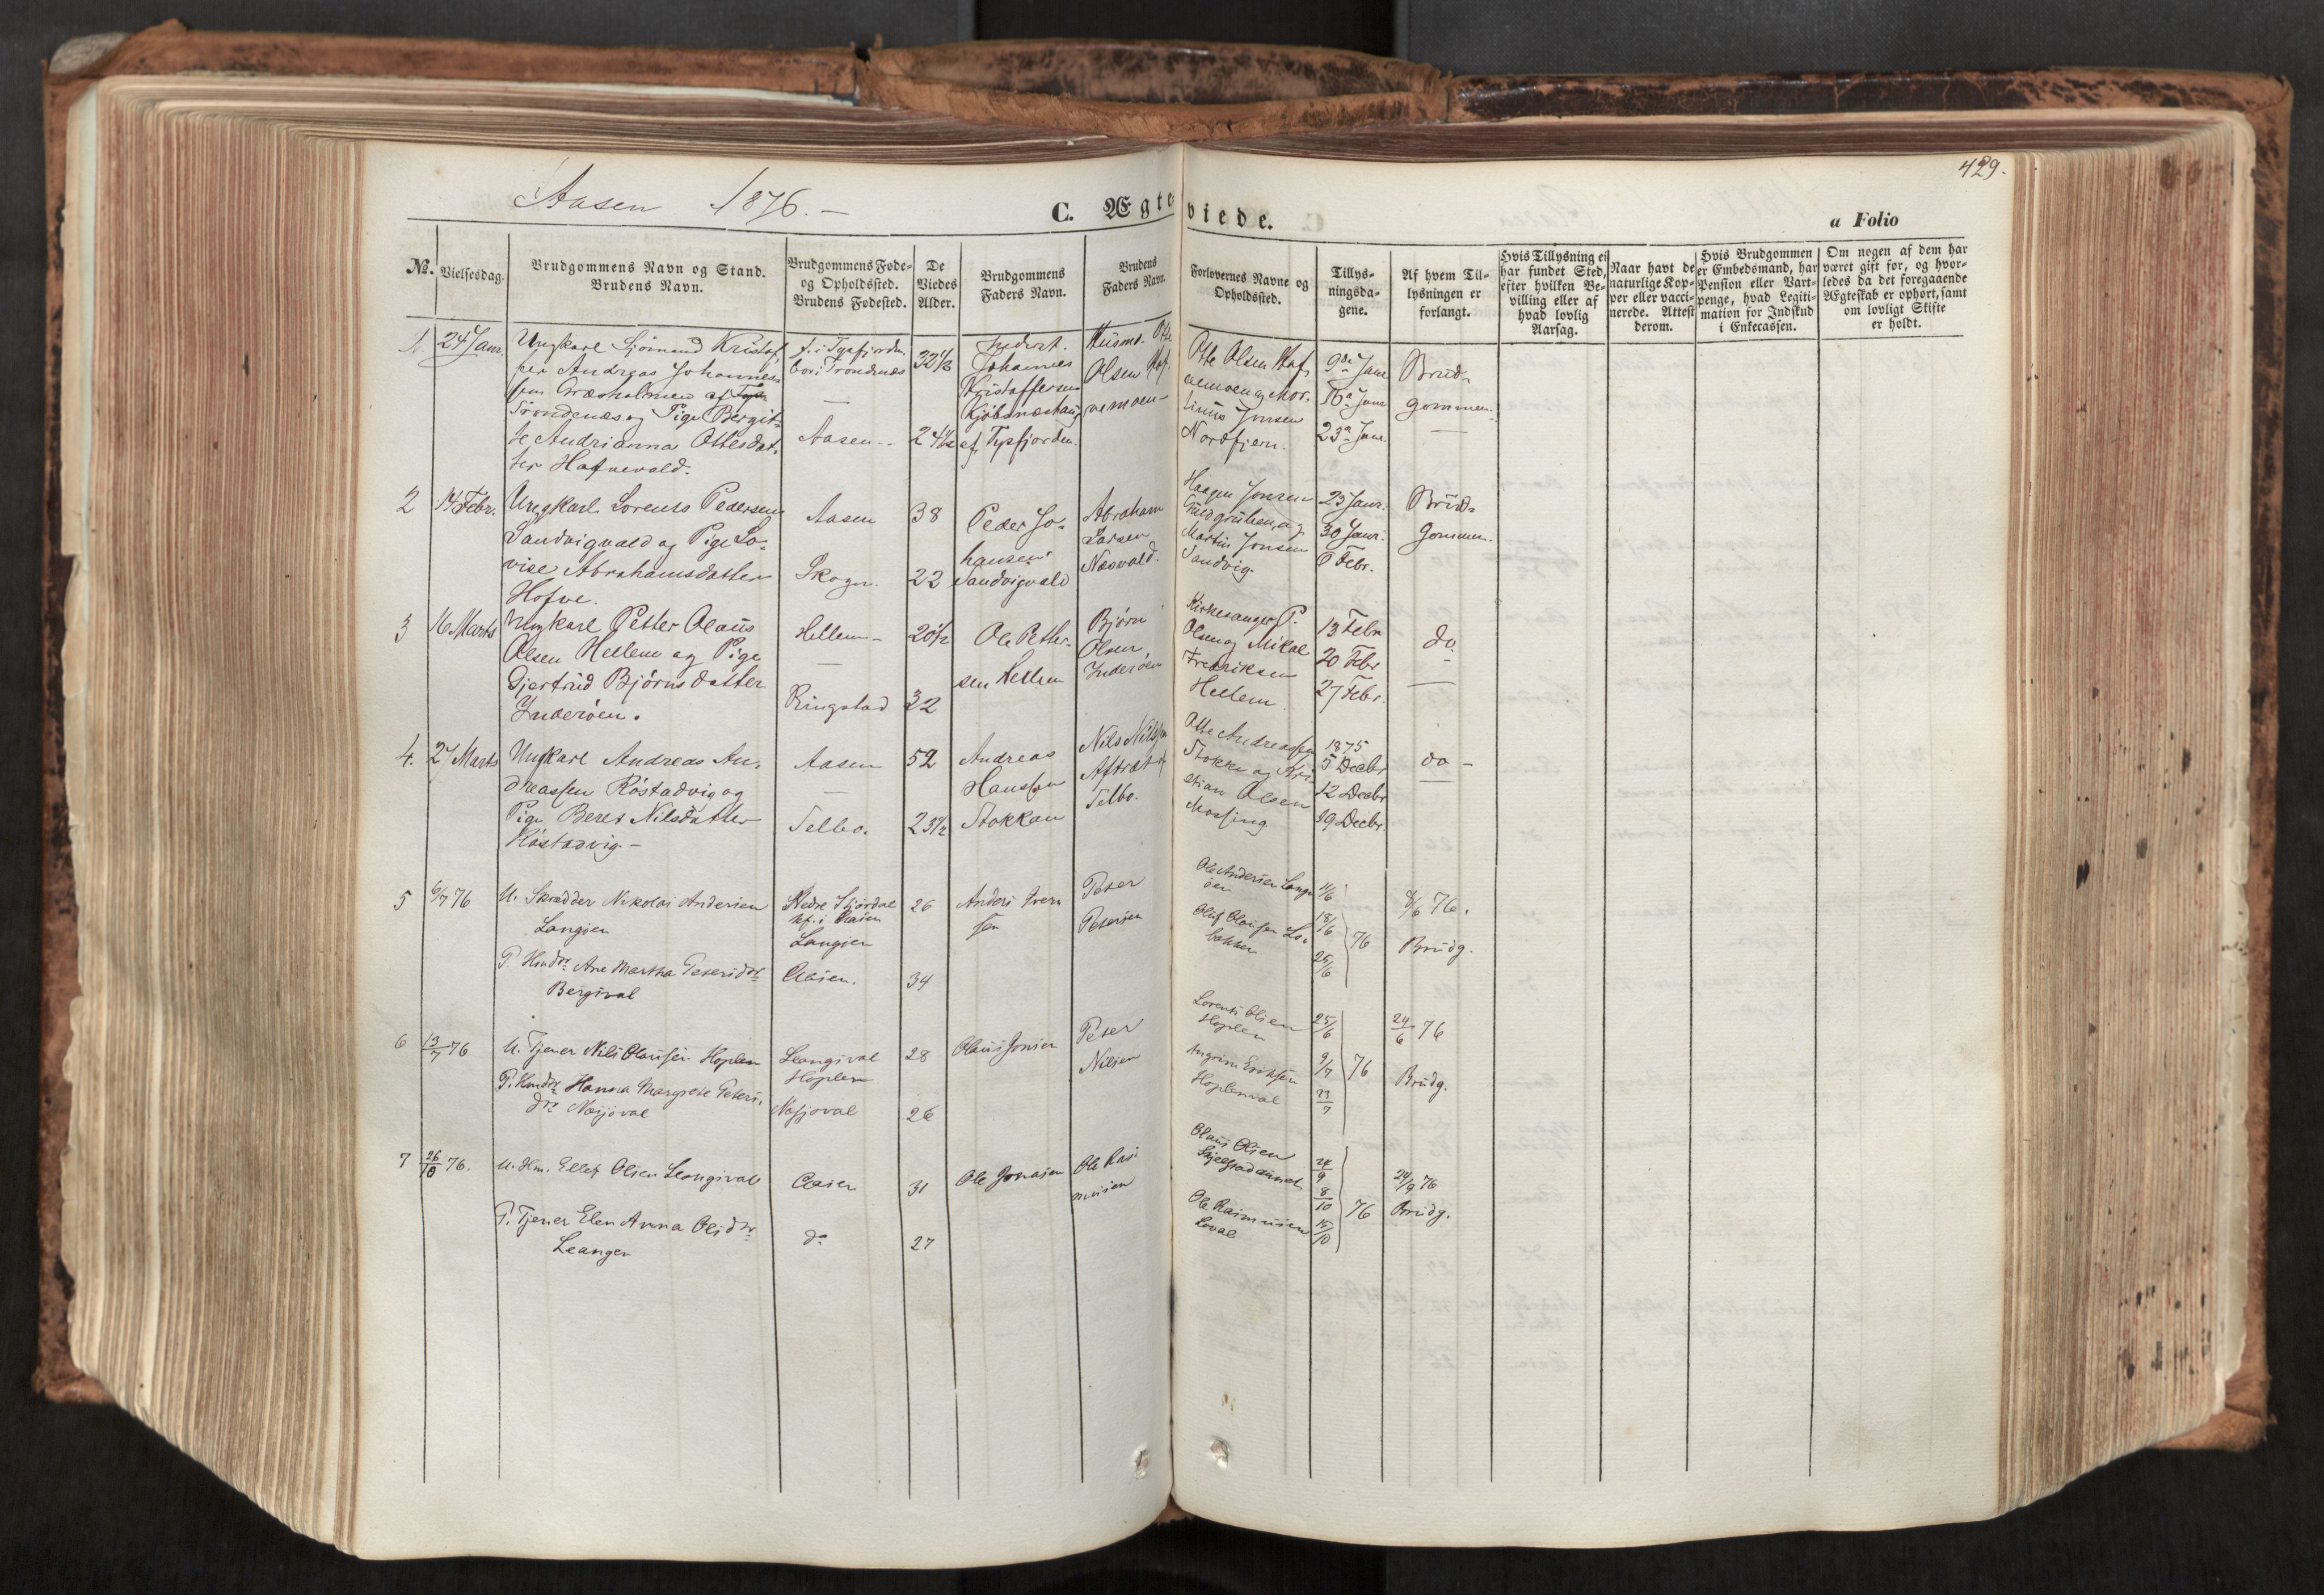 Aasen 1876. –
C. Ægteviede.
429.
a Folio
No.
Vielsesdag.
Brudgommens Navn og Stand.
Brudens Navn.
Brudgommens Føde-
og Opholdssted.
Brudens Fødested.
De
Viedes
Alder.
Brudgommens
Faders Navn.
Brudens
Faders Navn.
Forlovernes Navne og
Opholdssted.
Tillys-
ningsda-
gene.
Af hvem Til-
lysningen er
forlangt.
Hvis Tillysning ei
har fundet Sted,
efter hvilken Be-
villing eller af
hvad lovlig
Aarsag.
Naar havt de
naturlige Kop-
per eller vacci-
nerede. Attest
derom.
Hvis Brudgommen
er Embedsmand, har
Pension eller Vart-
penge, hvad Legiti-
mation for Indskud
i Enkecassen.
Om nogen af dem har
været gift før, og hvor-
ledes da det foregaaende
Ægteskab er ophørt, samt
om lovligt Skifte
er holdt.
1. 24 Janr.
Ungkarl Sjømand Kristof-
fer Andreas Johannes-
sen Græsholmen af
Trondenæs og Pige Bergit-
te Andrianna Ottesdat-
ter Hafnevald.
f. i Tysfjorden
bor i Trondenæs
Aasen
32 1/2
24 1/2
Johannes
Kristoffersen
af Tysfjorden.
Husmd. Otte
Olsen Haf-
nemoen
Otte Olsen Haf-
nemoen og Mor-
tinus Jonsen
Nordfjern.
9de Janr
16de Janr
23de Janr
Brud-
gommen
2 14 Febr.
Ungkarl Lorents Pedersen
Sandvigvald og Pige Lo-
vise Abrahamsdatter
Hofve.
Aasen
Skogn.
38
22
Peder Jo-
hansen
Sandvigvald
Abraham
Larsen
Næsvald.
Haagen Jonsen
Guldgruben og
Martin Jonsen
Sandvig
23 Janr.
30 Janr.
6 Febr.
Brud-
gommen.
3 16 Marts
Ungkarl Petter Olaus
Olsen Hellem og Pige
Gjertrud Bjørnsdatter
Inderøen.
Hellem
Ringstad
20 1/2
32
Ole Petter-
sen Hellem
Bjørn
Olsen
Inderøen
Kirkesanger P.
Olsen og Mikal
Fredriksen
Hellem
13 Febr
20 Febr
27 Febr.
do.
4. 27 Marts
Ungkarl Andreas An-
dreassen Røstadvig og
Pige Beret Nilsdatter
Røstadvig –
Aasen
Selbo.
52
23 1/2
Andreas
Hanssen
Stokkan
Nils Nilssen
Aftræt af
Selbo.
Otte Andreassen
Stokke og Kri-
stian Olsen
Mossing
1875
5 Decbr
12 Decbr
19 Decbr.
do –
5 6/7 76
U. Skrædder Nikolai Andersen
Langjen
P. Hmdr. Ane Martha Petersdr.
Bergsval
Nedre Stjørdal
Langjen
Aasen.
26
34
Anders Iver-
sen
Peter
Petersen
Ole Andersen Lang-
jen
Oluf Olausen Lo-
bakken
11/6
18/6
25/6
76
8/6 76.
Brudg.
6 13/7 76
U. Tjener Nils Olausen Hoplen
P. Hmdr. Hanna Margrete Peters-
dr. Nøssjøval
Leangsval
Hoplen
Nøssjøval
28
26
Olaus Jonsen
Peter
Nilsen
Lorents Olsen
Hoplen
Angrim Eriksen
Hoplenval
25/6
9/7
76
24/6 76
Brudg.
7 26/10 76.
U. Hm. Ellef Olsen Leangsval
P. Tjener Elen Anna Olsdr.
Leangen
Aasen
do
31
27
Ole Jonasen
Ole Ras-
musen
Olaus Olsen
Ole Rasmusen
Loval
24/9
8/10
15/10
76
24/9 76
Brudg.